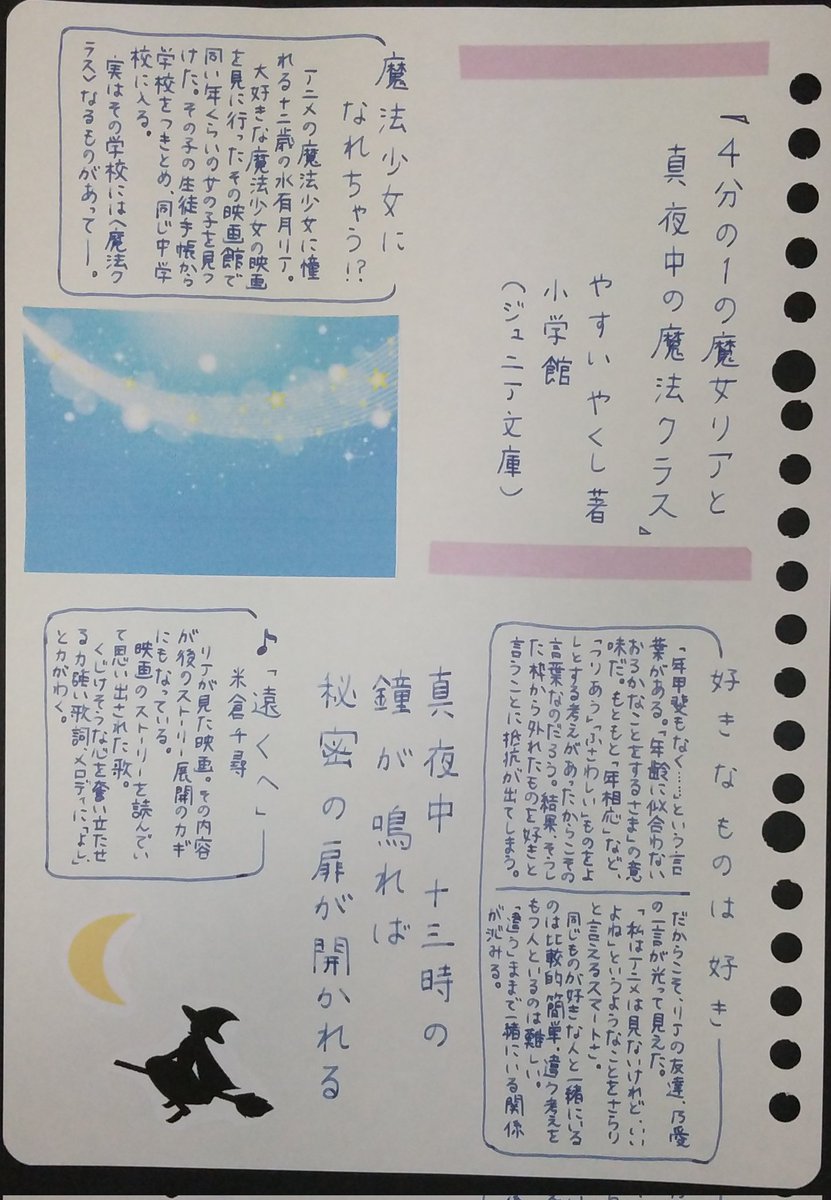 『4分の1の魔女リアと
真夜中の魔法クラス』
やすいやくし著
小学館
(ジュニア文庫)
魔法少女に
なれちゃう!?
アニメの魔法少女に憧
れる十二歳の水有月リア。
大好きな魔法少女の映画
を見に行ったその映画館で
同い年くらいの女の子を見つ
けた。その子の生徒手帳から
学校をつきとめ、同じ中学
校に入る。
実はその学校には〈魔法ク
ラス〉なるものがあって―。
好きなものは好き
「年甲斐もなく……」という言
葉がある。「年齢に似合わない
おろかなことをするさま」の意
味だ。もともと「年相応」など、
「つりあう」「ふさわしい」ものをよ
しとする考えがあったからこその
言葉なのだろう。結果、そうし
た枠から外れたものを好きと
言うことに抵抗が出てしまう。
だからこそ、リアの友達、乃愛
の一言が光って見えた。
「私はアニメは見ないけれど‥いい
よね」というようなことをさらり
と言えるスマートさ。
同じものが好きな人と一緒にいる
のは比較的簡単。違う考えを
もつ人といるのは難しい。
「違う」ままで一緒にいる関係
が沁みる。
真夜中 十三時の
鐘が鳴れば
秘密の扉が開かれる
♪「遠くへ」
米倉千尋
リアが見た映画。その内容
が後のストーリー展開のカギ
にもなっている。
映画のストーリーを読んでい
て思い出された歌。
くじけそうな心を奮い立たせ
る力強い歌詞、メロディに「よし」
と力がわく。